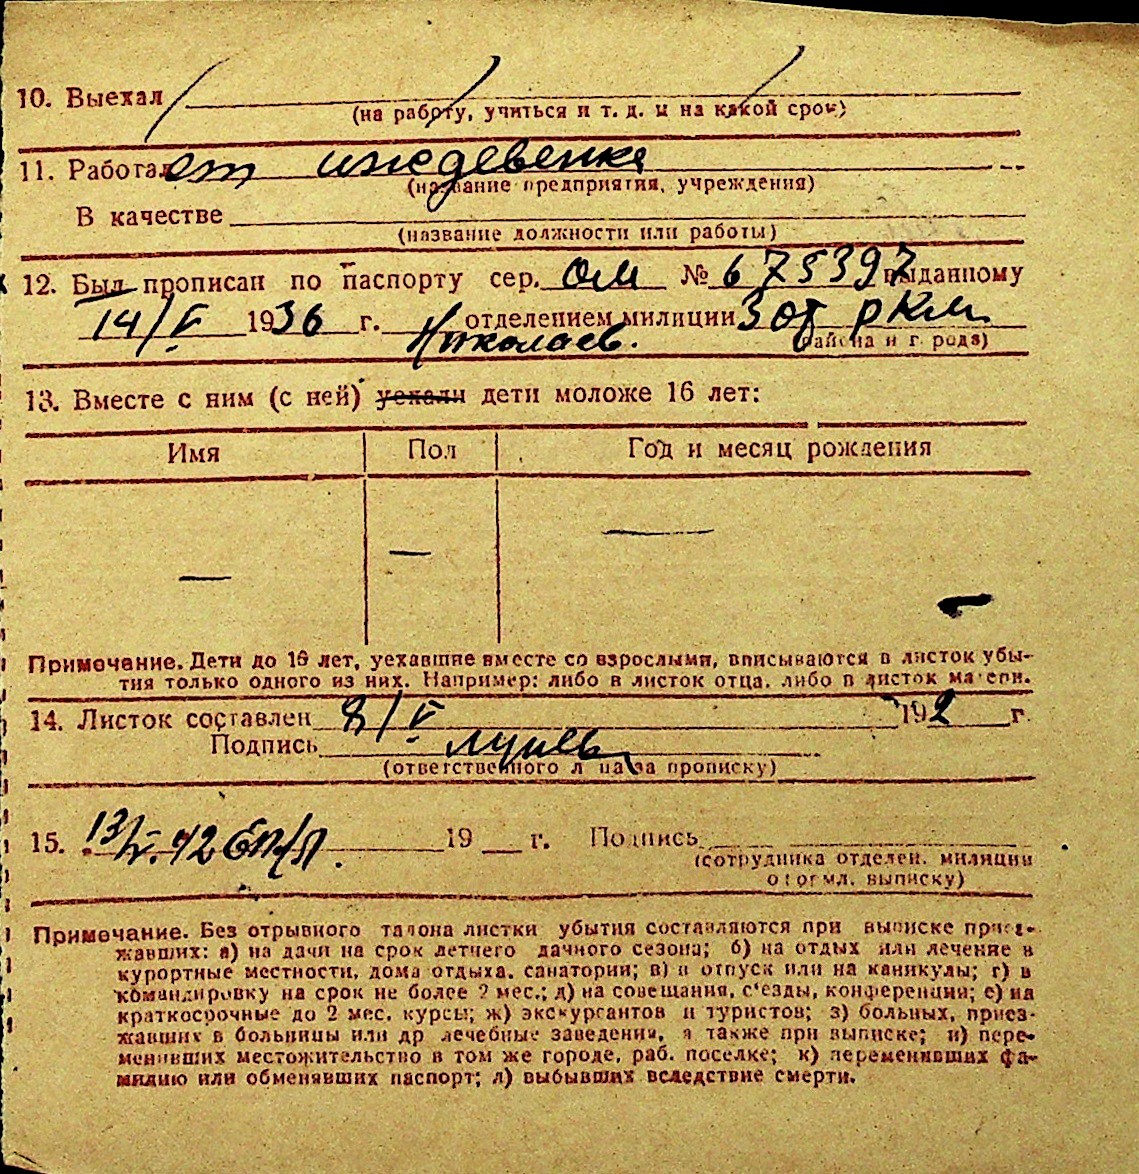 10. Выехал
(на работу, учиться и т. д. и на какой срок)
11. Работал ет иждевенка
(название предприятия, учреждения)
В качестве
(название должности или работы)
12. Был прописан по паспорту сер. ОМ № 675397 выданному
14/V 1936 г. отделением милиции 3 от РКМ
Николаев. района и города)
13. Вместе с ним (с ней) уехали дети моложе 16 лет:
Имя Пол Год и месяц рождения
— — —
Примечание. Дети до 16 лет, уехавшие вместе со взрослыми, вписываются в листок убы-
тия только одного из них. Например: либо в листок отца, либо в листок матери.
14. Листок составлен 8/V 192 г.
Подпись
(ответственного лица за прописку)
15. 13/V. 42 19 г. Подпись
(сотрудника отделен. милиции
оформл. выписку)
Примечание. Без отрывного талона листки убытия составляются при выписке приез-
жавших: а) на дачи на срок летнего дачного сезона; б) на отдых или лечение в
курортные местности, дома отдыха, санатории; в) в отпуск или на каникулы; г) в
командировку на срок не более 2 мес.; д) на совещания, с'езды, конференции; е) на
краткосрочные до 2 мес. курсы; ж) экскурсантов и туристов; з) больных, приез-
жавших в больницы или др лечебные заведения, а также при выписке; и) пере-
менивших местожительство в том же городе, раб. поселке; к) переменивших фа-
милию или обменявших паспорт; л) выбывших вследствие смерти.